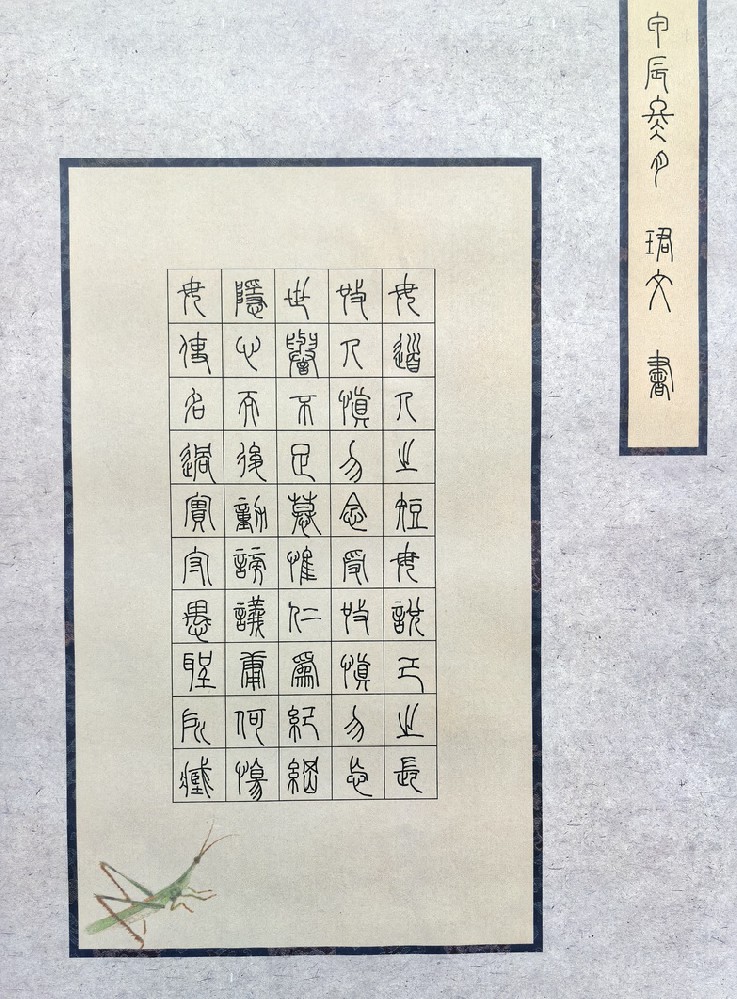 甲辰月 珺文 書
毋道人之短毋說己之長
施人慎勿念受施慎勿忘
世譽不足慕惟仁爲紀綱
隱心而後動謗議庸何傷
毋使名過實守愚聖所臧